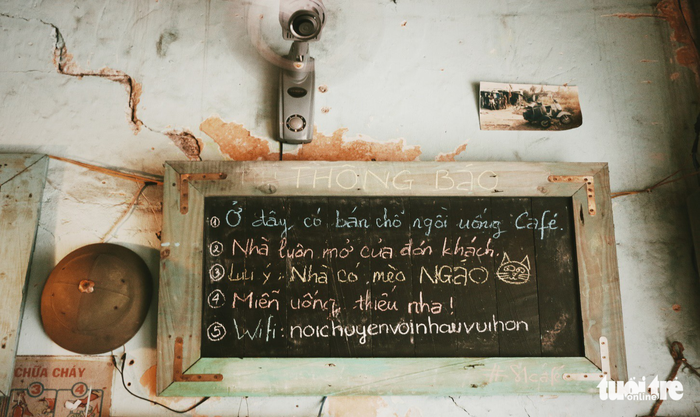 THÔNG BÁO
① Ở đây có bán chỗ ngồi uống Café.
② Nhà luôn mở cửa đón khách.
③ Lưu ý: Nhà có mèo NGÁO
④ Miễn uống thiếu nha!
⑤ Wifi: noichuyenvoinhauvuihon
CHỮA CHÁY
tuổi trẻ
online